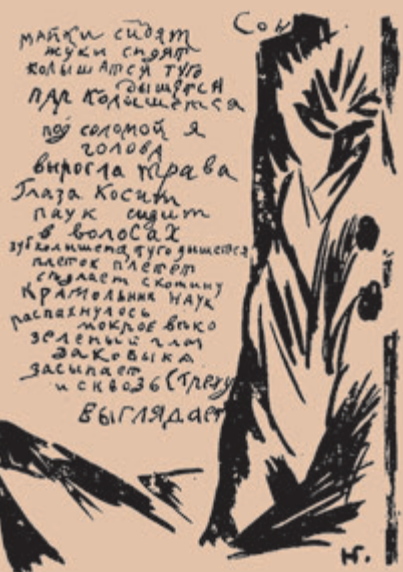 Сон
майки сидят
жуки сидят
колышатся туго
дышется
пар колышется
под соломой я
голова
выросла трава
Глаза косит
паук сидит
в волосах
зуб колышета туго дышется
плеток плетет
скотину
Крамольник наук
распахнулось
мокрое веко
зеленый глаз
заковыка
засипает
и сквозь (трещу
выглядает